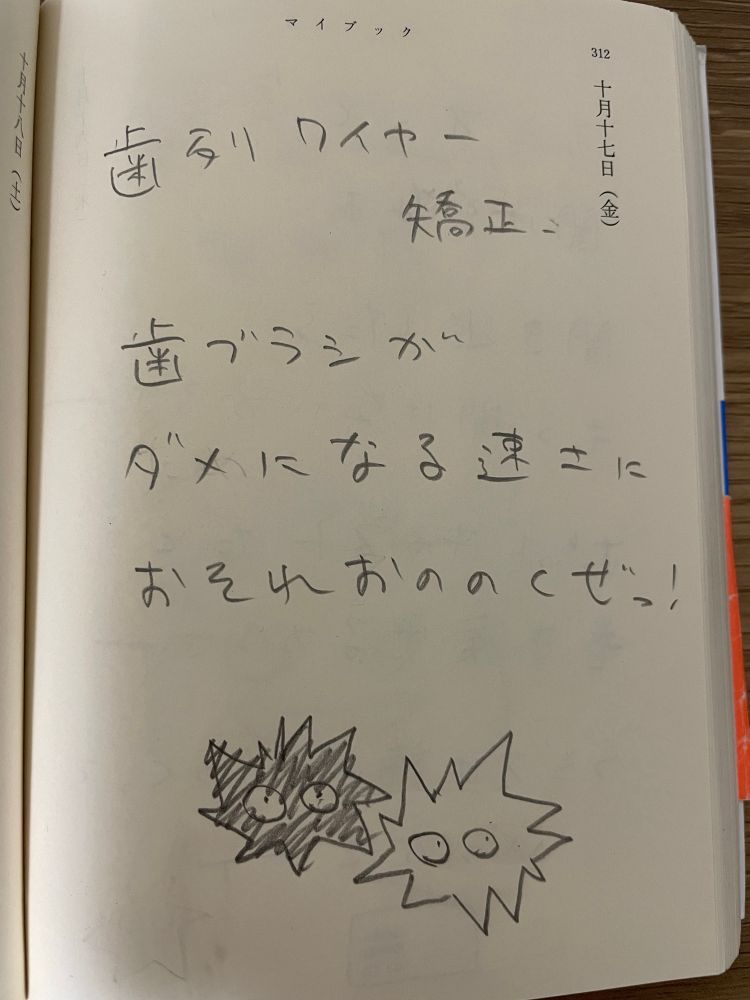 マイブック
312
十月十七日（金）
歯列ワイヤー
矯正、
歯ブラシが
ダメになる速さに
おそれおののくぜっ!